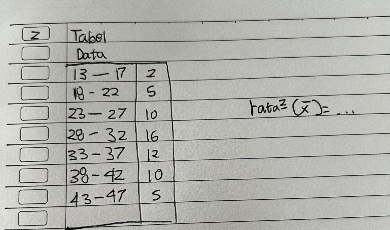 2 Tabel
Data
13 - 17 2
18 - 22 5
23 - 27 10 rata² (x̄) = ...
28 - 32 16
33 - 37 12
38 - 42 10
43 - 47 5